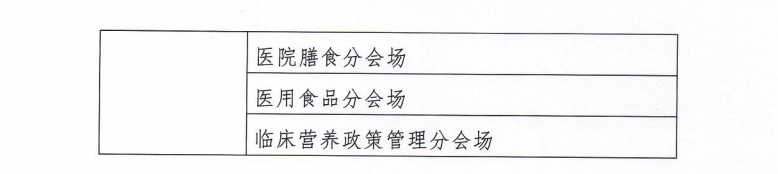 医院膳食分会场
医用食品分会场
临床营养政策管理分会场